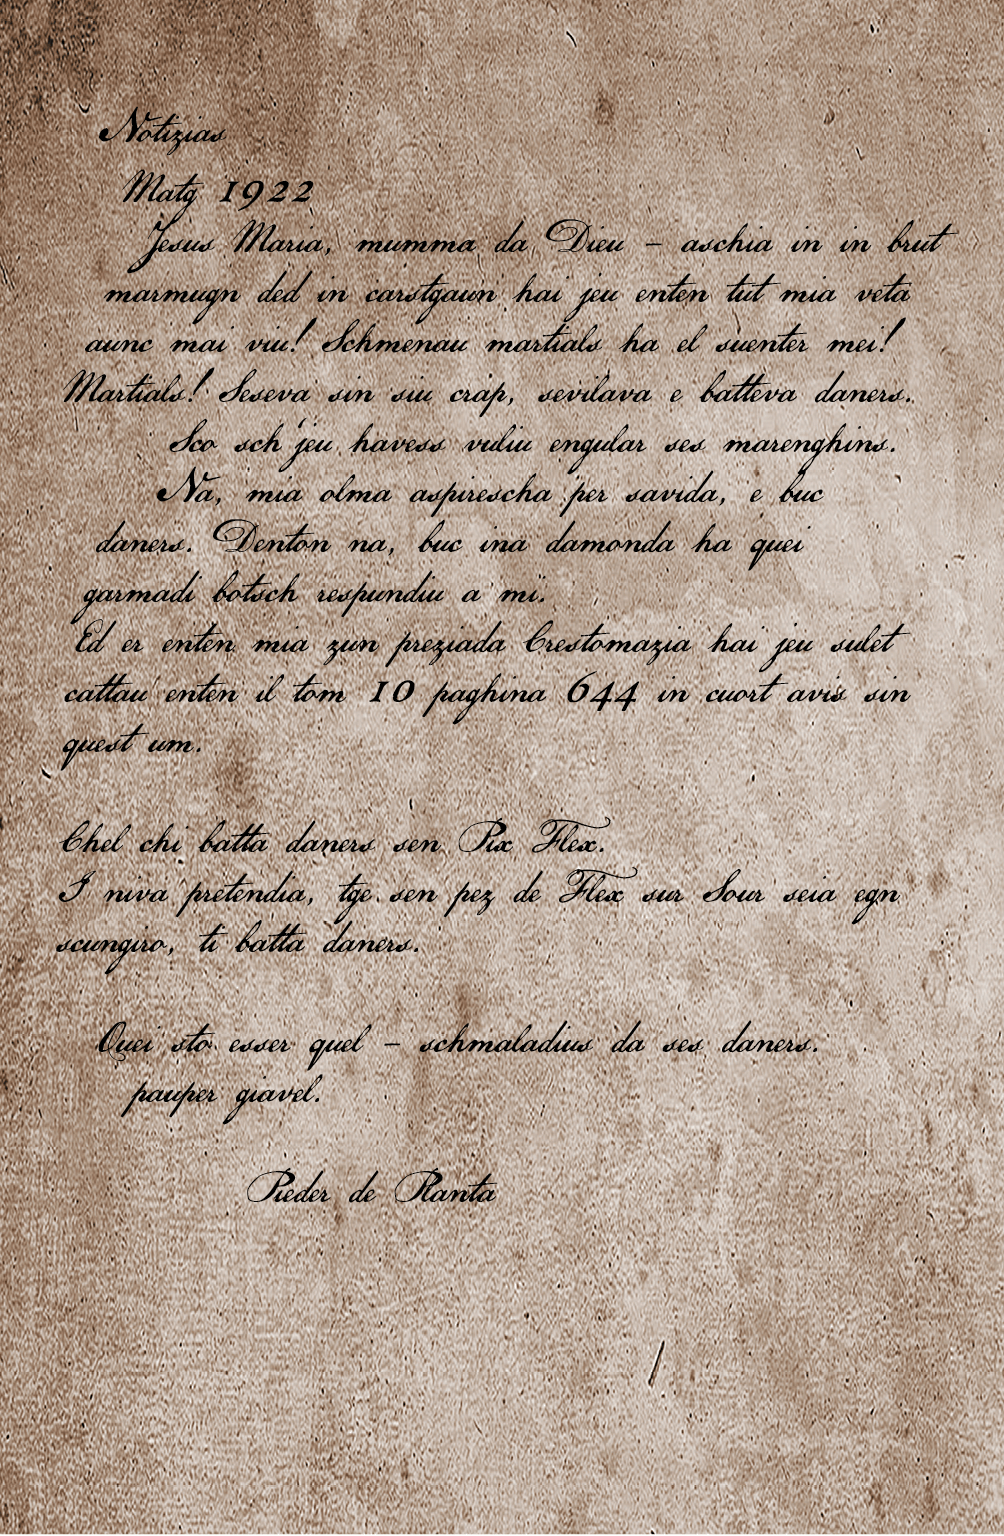 Notizias
Matg 1922
Jesus Maria, mumma da Dieu – aschia in in brut
marmugn ded in carstgaun hai jeu enten tut mia veta
aunc mai viu! Schmenau martials ha el suenter mei!
Martials! Seseva sin siu crap, sevilava e batteva daners.
Sco sch'jeu havess vuliu engular ses marenghins.
Na, mia olma aspirescha per savida, e buc
daners. Denton na, buc ina damonda ha quei
garmadi botsch respundiu a mi.
Ed er enten mia zun preziada Crestomazia hai jeu sulet
cattau enten il tom 10 paghina 644 in cuort avis sin
quest um.
Chel chi batta daners sen Pix Flex.
I niva pretendia, tge sen pez de Flex sur Sour seia egn
scungiro, ti batta daners.
Quei sto esser quel – schmaladius da ses daners.
pauper giavel.
Pieder de Planta